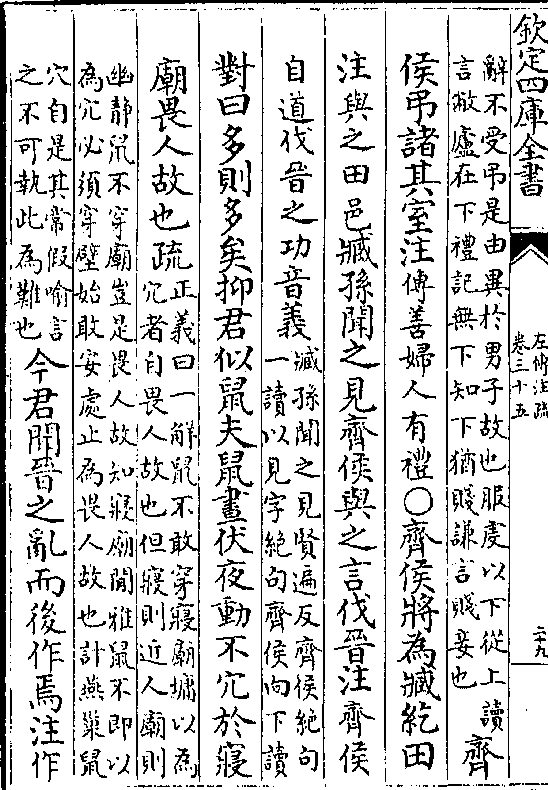 欽定四庫全書
左傳注疏
卷三十五
二十九
辭不受弔是由異於男子故也服虔以下從上讀
言敝廬在下禮記無下知下猶賤謙言賤妾也
齊
侯弔諸其室注傳善婦人有禮○齊侯將為臧紇田
注與之田邑臧孫聞之見齊侯與之言伐晉注齊侯
自道伐晉之功音義
臧孫聞之見賢遍反齊侯絶句
一讀以見字絶句齊侯向下讀
對曰多則多矣抑君似鼠夫鼠晝伏夜動不穴於寢
廟畏人故也疏
正義曰一解鼠不敢穿寢廟墉以為
穴者自畏人故也但寢則近人廟則
幽静鼠不穿廟豈是畏人故知寢廟閒雅鼠不即以
為穴必須穿壁始敢安處止為畏人故也計燕巢鼠
穴自是其常假喻言
之不可執此為難也
今君聞晉之亂而後作焉注作